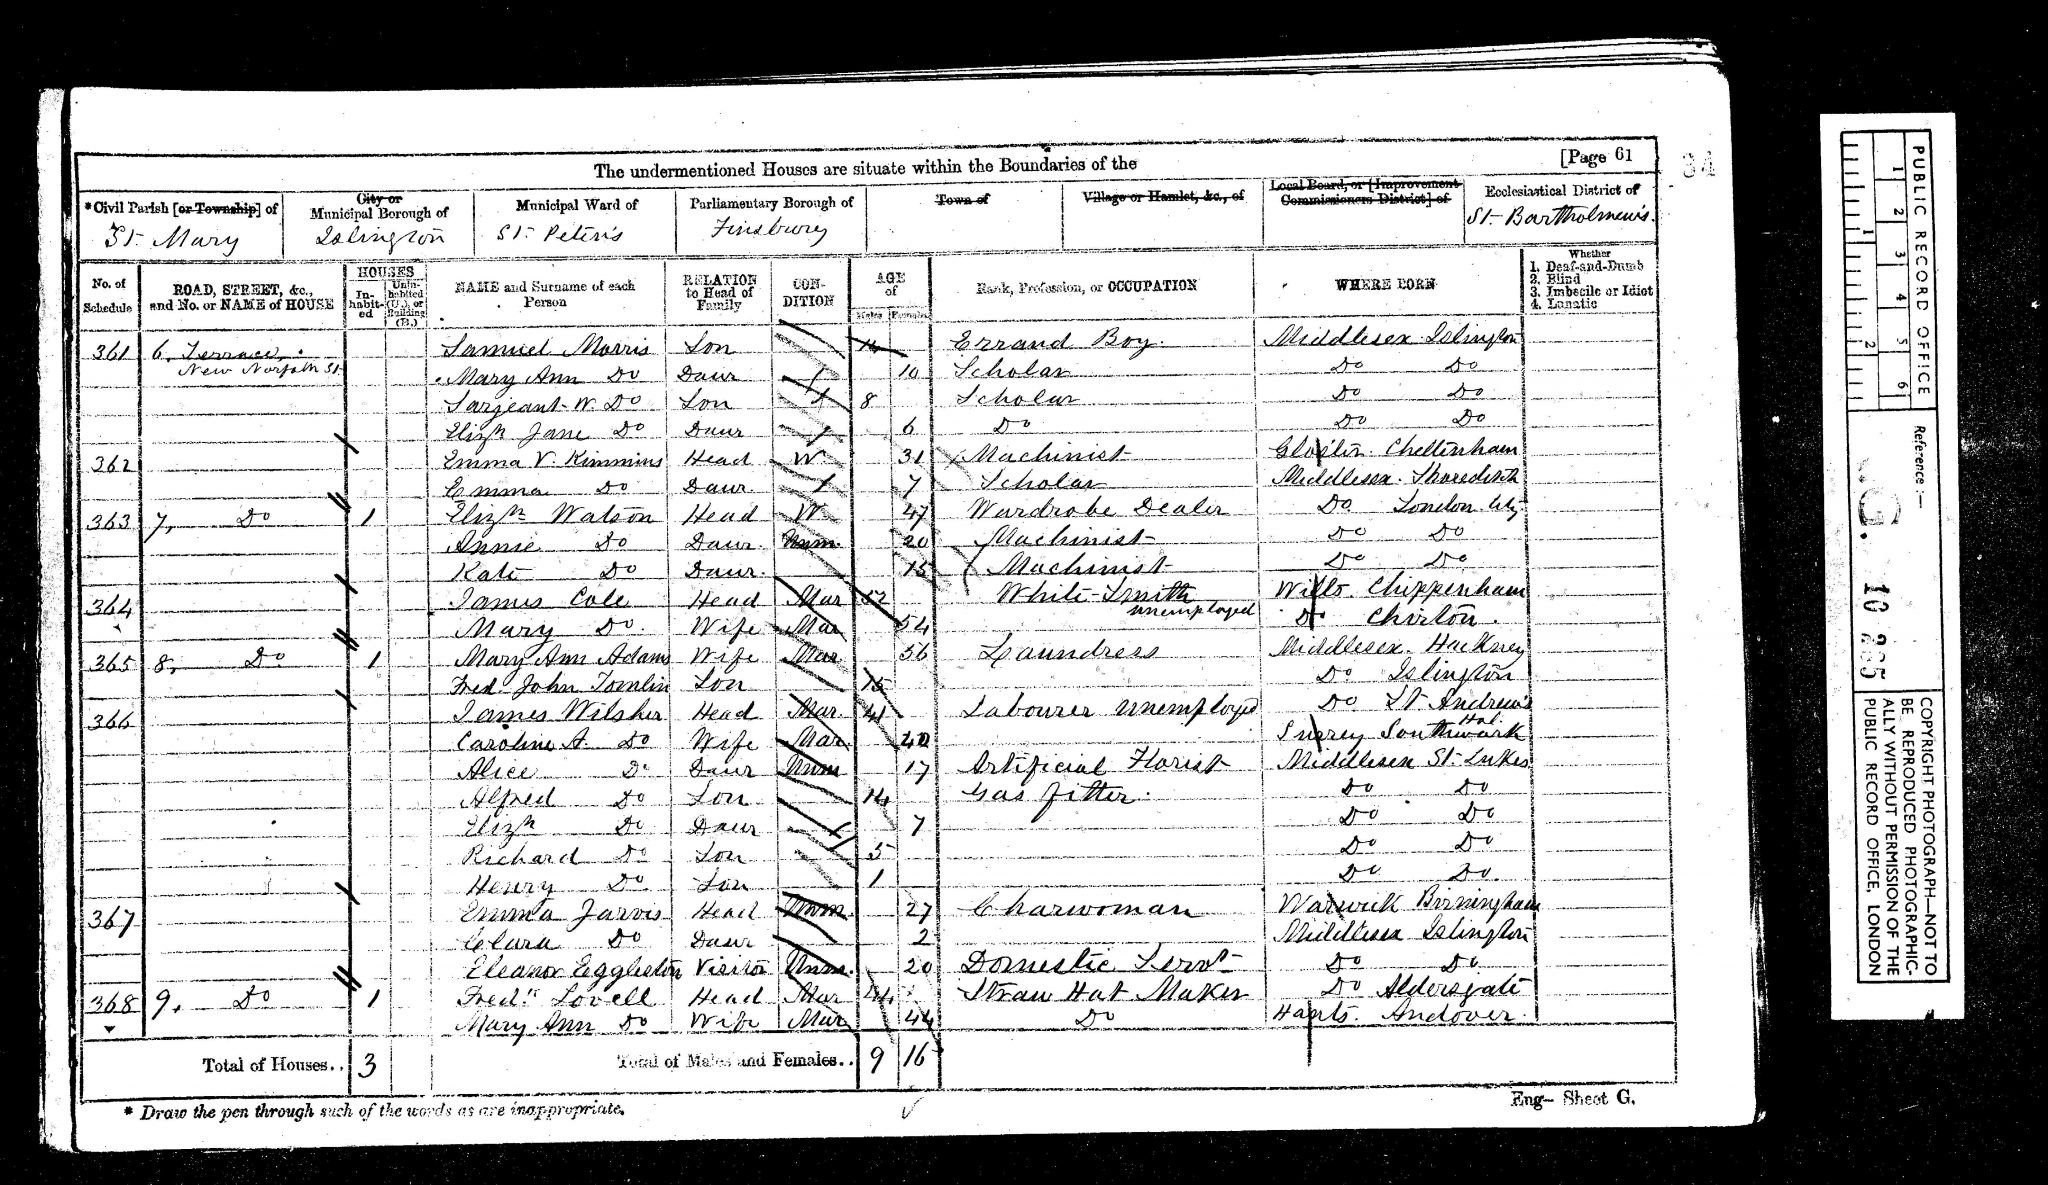 The undermentioned Houses are situate within the Boundaries of the [Page 61
34
*Civil Parish [or Township] of St. Mary
City or Municipal Borough of Islington
Municipal Ward of St. Peter's
Parliamentary Borough of Finsbury
Town of
Village or Hamlet, &c., of
Local Board, or [Improvement Commissioners District] of
Ecclesiastical District of St. Bartholmew's.
No. of Schedule
ROAD, STREET, &c., and No. or NAME of HOUSE
HOUSES
In-habited
Unin-habited (U.), or Building (B.)
NAME and Surname of each Person
RELATION to Head of Family
CON-DITION
AGE of
Males Females
Rank, Profession, or OCCUPATION
WHERE BORN
Whether
1. Deaf-and-Dumb
2. Blind
3. Imbecile or Idiot
4. Lunatic
361 6, Terrace, New Norfolk St Samuel Morris Son 14 Errand Boy. Middlesex Islington
Mary Ann Do Daur 10 Scholar Do Do
Sarjeant W. Do Son 8 Scholar Do Do
Elizh Jane Do Daur 6 Do Do Do
362 Emma V. Kimmins Head W. 31 Machinist Gloster Cheltenham
Emma Do Daur. 7 Scholar Middlesex. Shoreditch
363 7, Do 1 Elizh Watson Head W. 47 Wardrobe Dealer Do London City
Annie Do Daur. Unm. 20 Machinist Do Do
Kate Do Daur. 15 Machinist Do Do
364 James Cole Head Mar 52 White-Smith unemployed Wilts. Chippenham
Mary Do. Wife Mar 54 Do Chirton.
365 8, Do 1 Mary Ann Adams Wife Mar 56 Laundress Middlesex. Hackney
Fred. John Tomlin Son 15 Do Islington
366 James Wilsher Head Mar. 41 Labourer unemployed Do St Andrew's Hol.
Caroline A. Do Wife Mar. 40 Surrey Southwark
Alice Do Daur Unm 17 Artificial Florist Middlesex St. Lukes
Alfred Do Son 14 Gas fitter. Do Do
Elizh Do Daur 7 Do Do
Richard Do Son 5 Do Do
Henry Do. Son 1 Do Do.
367 Emma Jarvis Head Unm. 27 Charwoman Warwick Birmingham
Clara Do Daur 2 Middlesex Islington
Eleanor Eggleston Visitor Unm. 20 Domestic Servt Do Do
368 9, Do 1 Fredk Lovell Head Mar 44 Straw Hat Maker Do Aldersgate
Mary Ann Do Wife Mar 44 Do Hants. Andover.
Total of Houses.. 3 Total of Males and Females.. 9 16
* Draw the pen through such of the words as are inappropriate.
Eng- Sheet G.
PUBLIC RECORD OFFICE
1 2 3 4 5 6
1 2
Reference:-
R.G. 10 265
COPYRIGHT PHOTOGRAPH—NOT TO
BE REPRODUCED PHOTOGRAPHIC-
ALLY WITHOUT PERMISSION OF THE
PUBLIC RECORD OFFICE, LONDON